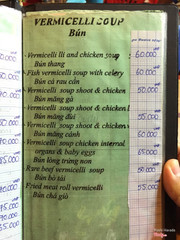 VERMICELLI SOUP
Bún
-Vermicelli lli and chicken soup 60.000
Bún thang
-Fish vermicelli soup with celery 60.000
Bún cá rau cần
-Vermicelli soup shoot & chicken 50.000
Bún măng gà
-Vermicelli soup shoot & chicken l 55.000
Bún măng đùi
-Vermicelli soup shoot & chicken 60.000
Bún măng cánh
-Vermicelli soup chicken internal 65.000
organs & baby eggs
Bún lòng trứng non
-Rare beef vermicelli soup 60.000
Bún bò tái
-Fried meat roll vermicelli 55.000
Bún chả giò